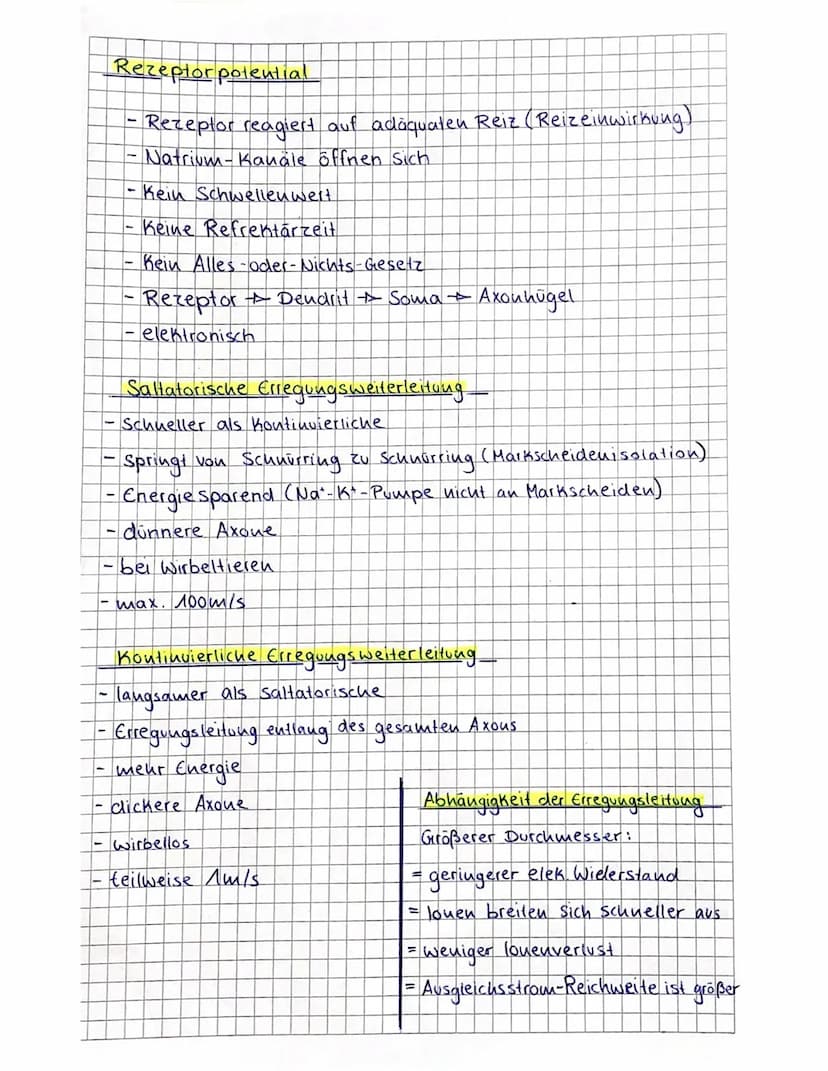 Rezeptorpotential
- Rezeptor reagiert auf adäquaten Reiz (Reizeinwirkung)
- Natrium-Kanäle öffnen sich
- Kein Schwellenwert
- Keine Refrektärzeit
- Kein Alles-oder-Nichts-Gesetz
- Rezeptor → Dendrit → Soma → Axonhügel
- elektronisch
Saltatorische Erregungsweiterleitung
- Schneller als Kontinuierliche
- Springt von Schnürring zu Schnürring (Markscheidenisolation)
- Energiesparend (Na⁺-K⁺-Pumpe nicht an Markscheiden)
- dünnere Axone
- bei Wirbeltieren
- max. 100m/s
Kontinuierliche Erregungsweiterleitung
- langsamer als saltatorische
- Erregungsleitung entlang des gesamten Axons
- mehr Energie
- dickere Axone
- wirbellos
- teilweise 1m/s
Abhängigkeit der Erregungsleitung
Größerer Durchmesser:
= geringerer elek. Wiederstand
= Ionen breiten sich schneller aus
= weniger Ionenverlust
= Ausgleichsstrom-Reichweite ist größer